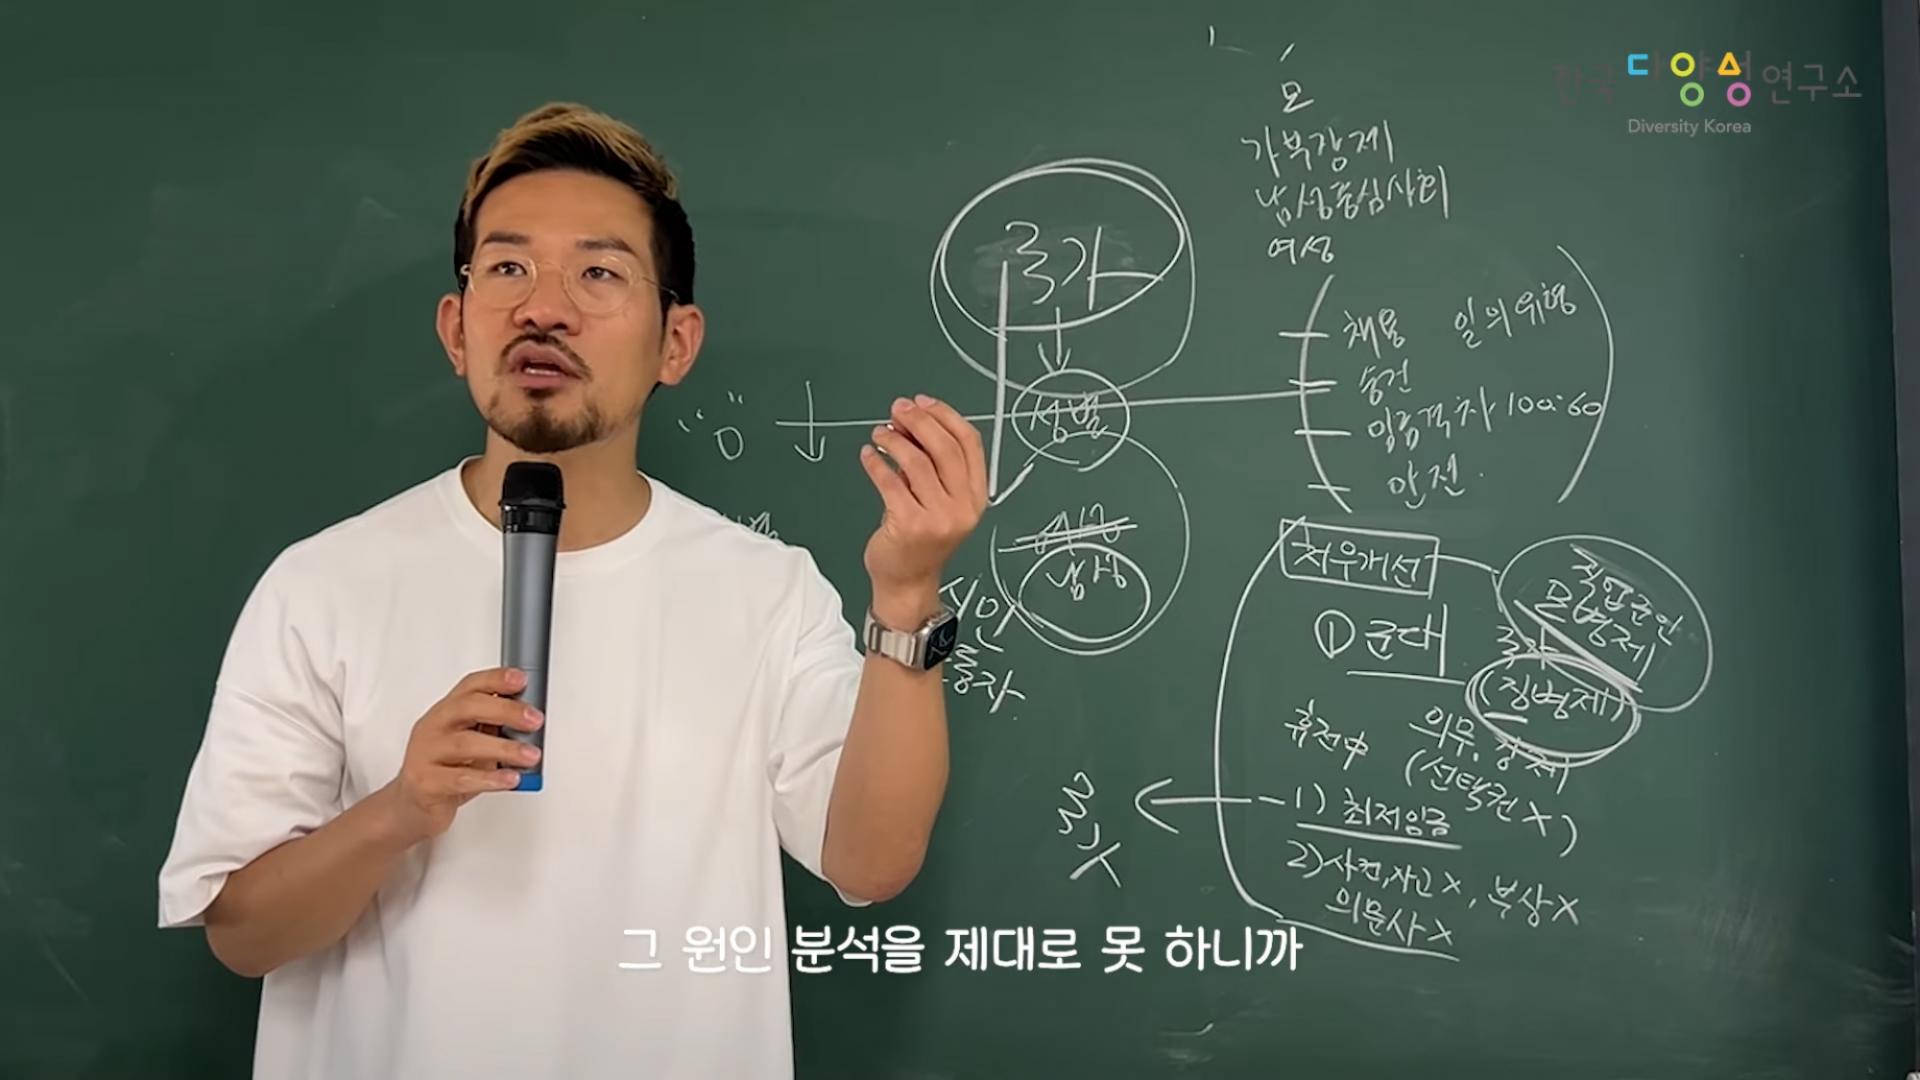 한국다양성연구소
Diversity Korea
가부장제
남성중심사회
여성
국가
채용 일의 위형
승진
임금격차 100:60
안전
"0"
성별
남성
처우개선
직업군인
모병제
① 군대
국가
(징병제)
휴전中
의무, 강제
(선택권 X)
1) 최저임금
2) 사건, 사고 X, 부상 X
의문사 X
그 원인 분석을 제대로 못 하니까